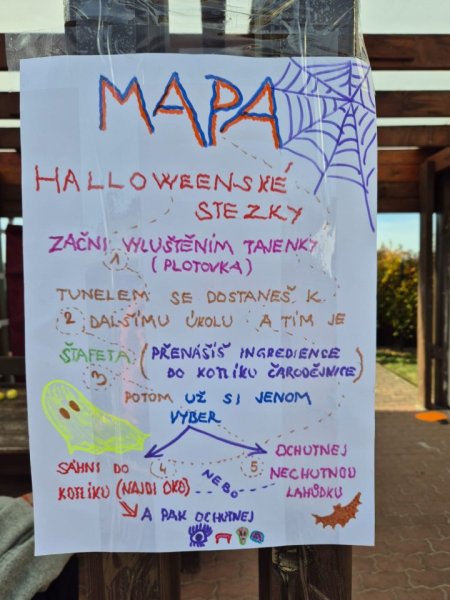 MAPA
HALLOWEENSKÉ
STEZKY
ZAČNI VYLUŠTĚNÍM TAJENKY
1 (PLOTOVKA)
TUNELEM SE DOSTANEŠ K
2 DALŠÍMU ÚKOLU A TÍM JE
ŠTAFETA (PŘENÁŠÍŠ INGREDIENCE
3 DO KOTLÍKU ČARODĚJNICE)
POTOM UŽ SI JENOM
VYBER
SÁHNI DO
KOTLÍKU (NAJDI OKO)
4
NEBO
5
OCHUTNEJ
NECHUTNOU
LAHŮDKU
A PAK OCHUTNEJ